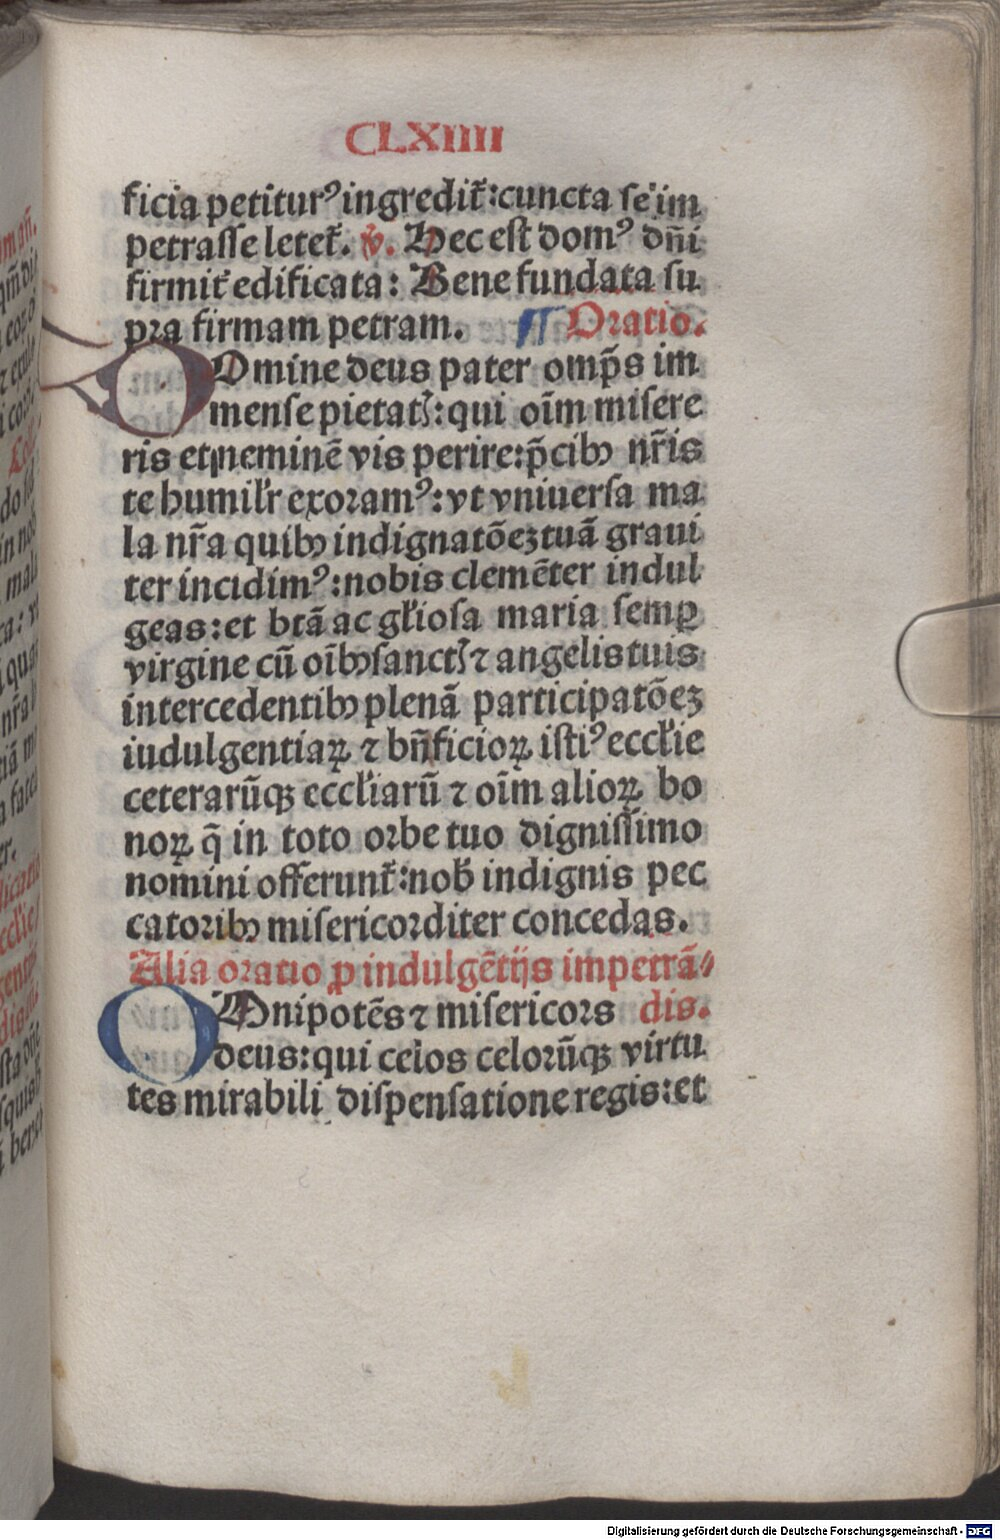 CLXIIII
ficia petiturꝰ ingredit᷑: cuncta se im
petrasse letet᷑. ℣. Hec est domꝰ dn̄i
firmit᷑ edificata: Bene fundata su
pra firmam petram. ¶ Oratio.
DOmine deus pater omp̄s im
mense pietatꝭ: qui oīm misere
ris et neminē vis perire: p̄cibꝫ nr̄is
te humilr̄ exoramꝰ: vt vniuersa ma
la nr̄a quibꝫ indignatōeꝫ tuā graui
ter incidimꝰ: nobis clemēter indul
geas: et btā ac gl̄iosa maria semꝑ
virgine cū oībꝫ sanctꝭ ⁊ angelis tuis
intercedentibꝫ plenā participatōeꝫ
iudulgentiaꝝ ⁊ bn̄ficioꝝ istiꝰ eccl̄ie
ceterarūqꝫ eccl̄iarū ⁊ oīm alioꝝ bo
noꝝ q̄ in toto orbe tuo dignissimo
nomini offerunt᷑: nob̄ indignis pec
catoribꝫ misericorditer concedas.
Alia oratio ꝓ indulgētijs impetrā⸗
OMnipotēs ⁊ misericors dis.
deus: qui celos celorūqꝫ virtu
tes mirabili dispensatione regis: et
Digitalisierung gefördert durch die Deutsche Forschungsgemeinschaft - DFG